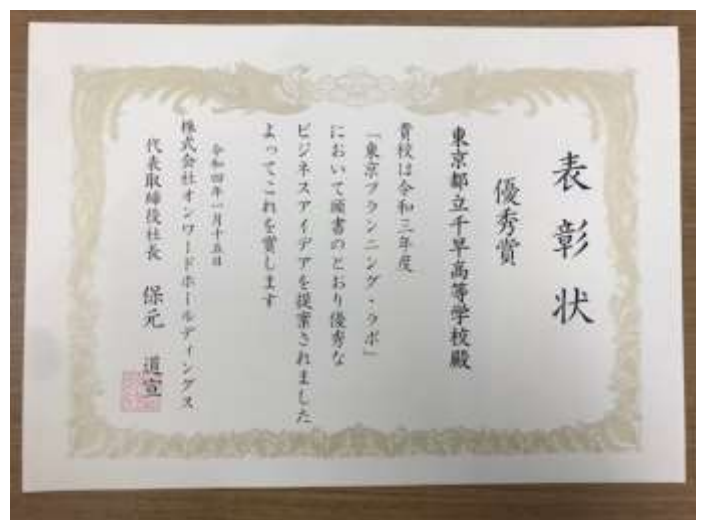 表彰状
優秀賞
東京都立千早高等学校殿
貴校は令和三年度
「東京プランニング・ラボ」
において頭書のとおり優秀な
ビジネスアイデアを提案されました
よってこれを賞します
令和四年一月十五日
株式会社オンワードホールディングス
代表取締役社長 保元 道宣